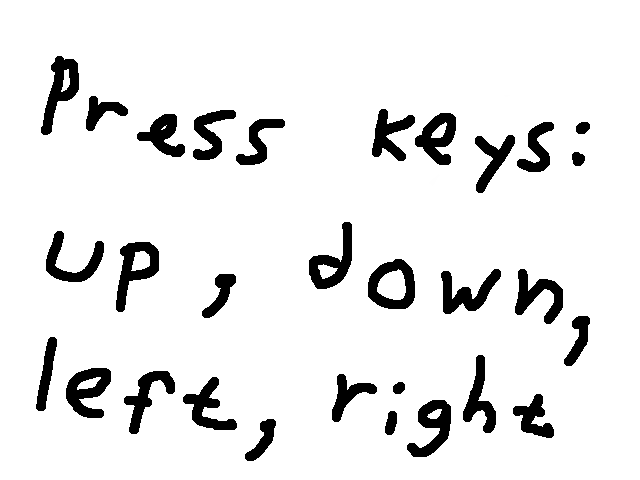 Press keys:
up, down,
left, right